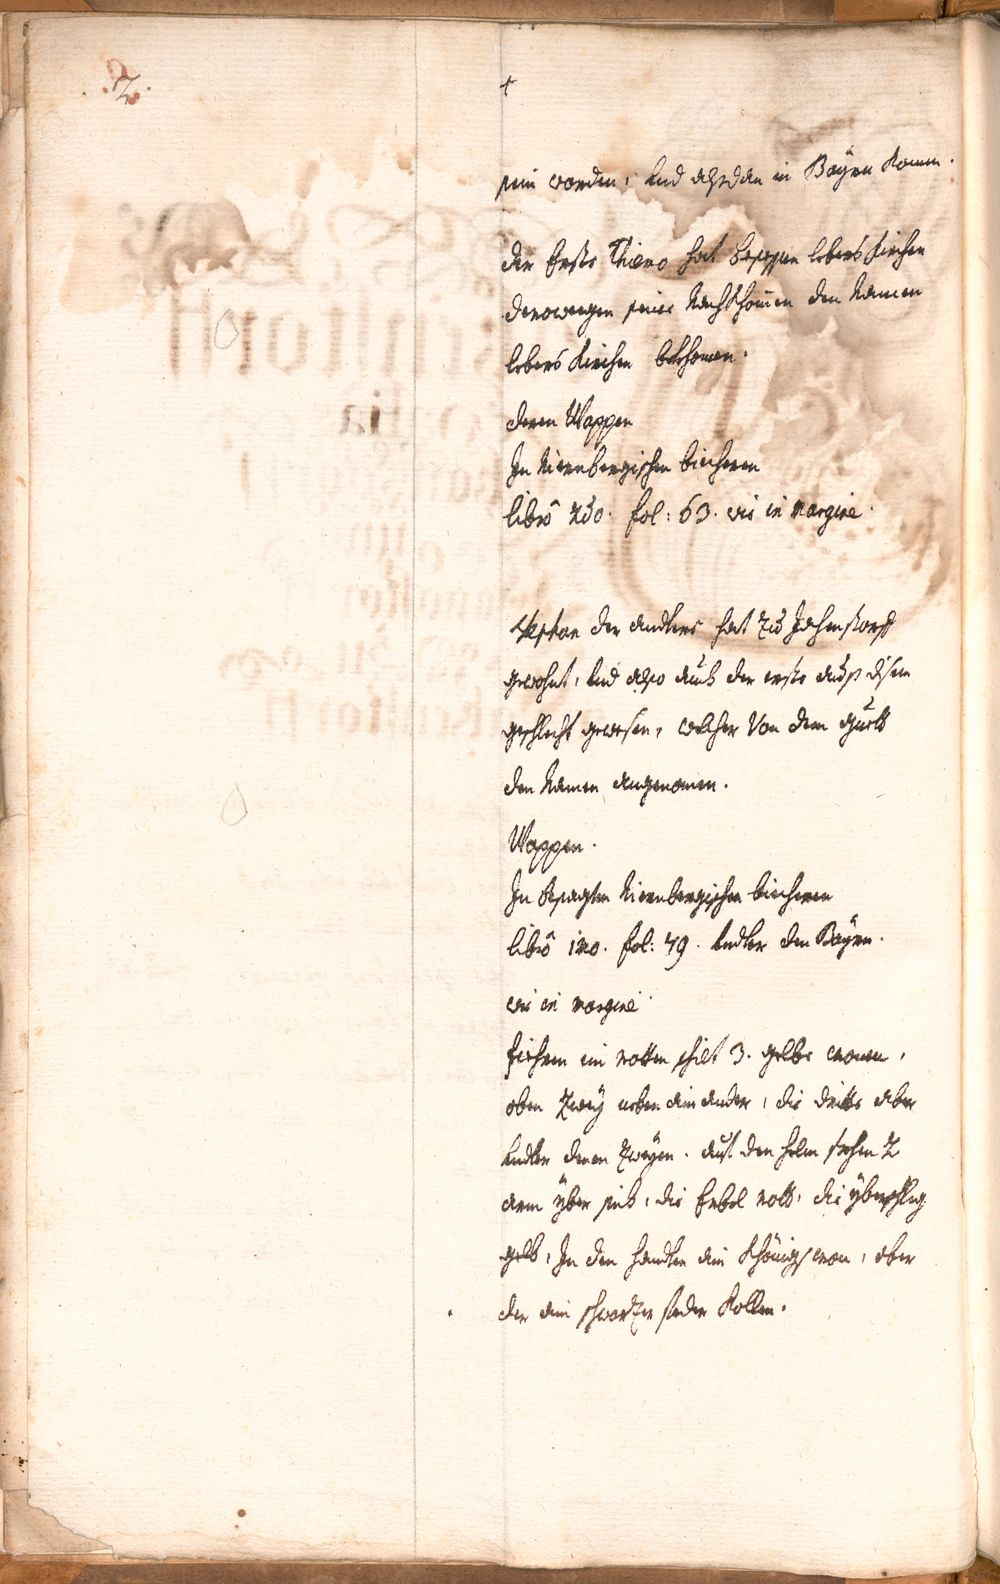 2.
+
sein worden, und alsdan in Bayrn komen.
der Erste Thiemo hat besessen Lebers Kirchen
derowegen seine Nachkhomen den Namen
Lebers Kirchen bekhomen.
deren Wappen
In Nirnbergischen biecheren
libro fol: 63. wie in margine.
der andere hat zu
gewohnt, und also auch der erste auß disem
geschlecht gewesen, welcher von dem guett
den Namen angenomen.
Wappen.
In besagten Nirnbergischen biecheren
libro fol: 79. under den Bayrn.
wie in margine
fiehren ein rotten schilt 3. gelbe cronen,
oben zwey neben ain ander, die dritte aber
under denen zweyen. auf den helm stehen 2
arm yber sich, die Erbel rott, die yberschleg
gelb, In den handten ain khönigs cron, ober
der ain schwarzer feder Kollen.